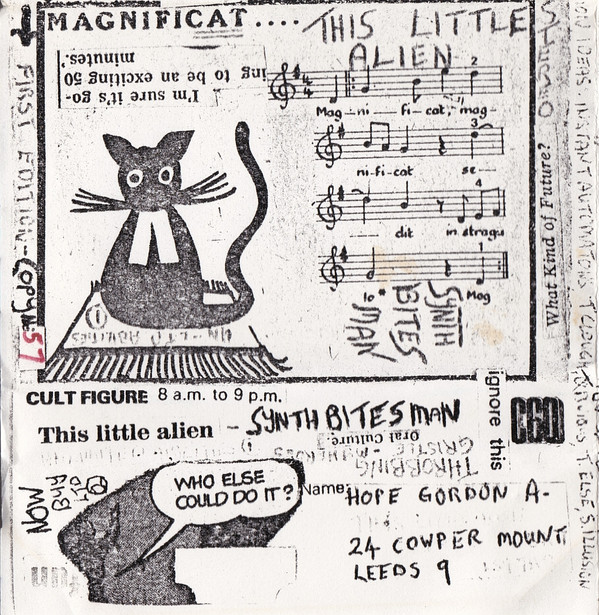 MAGNIFICAT....
THIS LITTLE
ALIEN
I'm sure it's go-
ing to be an exciting 50
minutes.'
2
Mag-ni-fi-cat, mag-
3
ni-fi-cat se-
4
dit in strag
1
Io Mag
SYNTH
BITES
MAN
FIRST EDITION-COPY No: 57
What Kind of Future?
IDEAS INSTANT AUTOMATONS
ILLUSION
CULT FIGURE 8 a.m. to 9 p.m.
This little alien - SYNTHBITESMAN
ignore this
C60
Oral Culture.
THROBBING
GRISTLE
NOW
BUY
WHO ELSE
COULD DO IT?
Name: HOPE GORDON A-
24 COWPER MOUNT
LEEDS 9
un